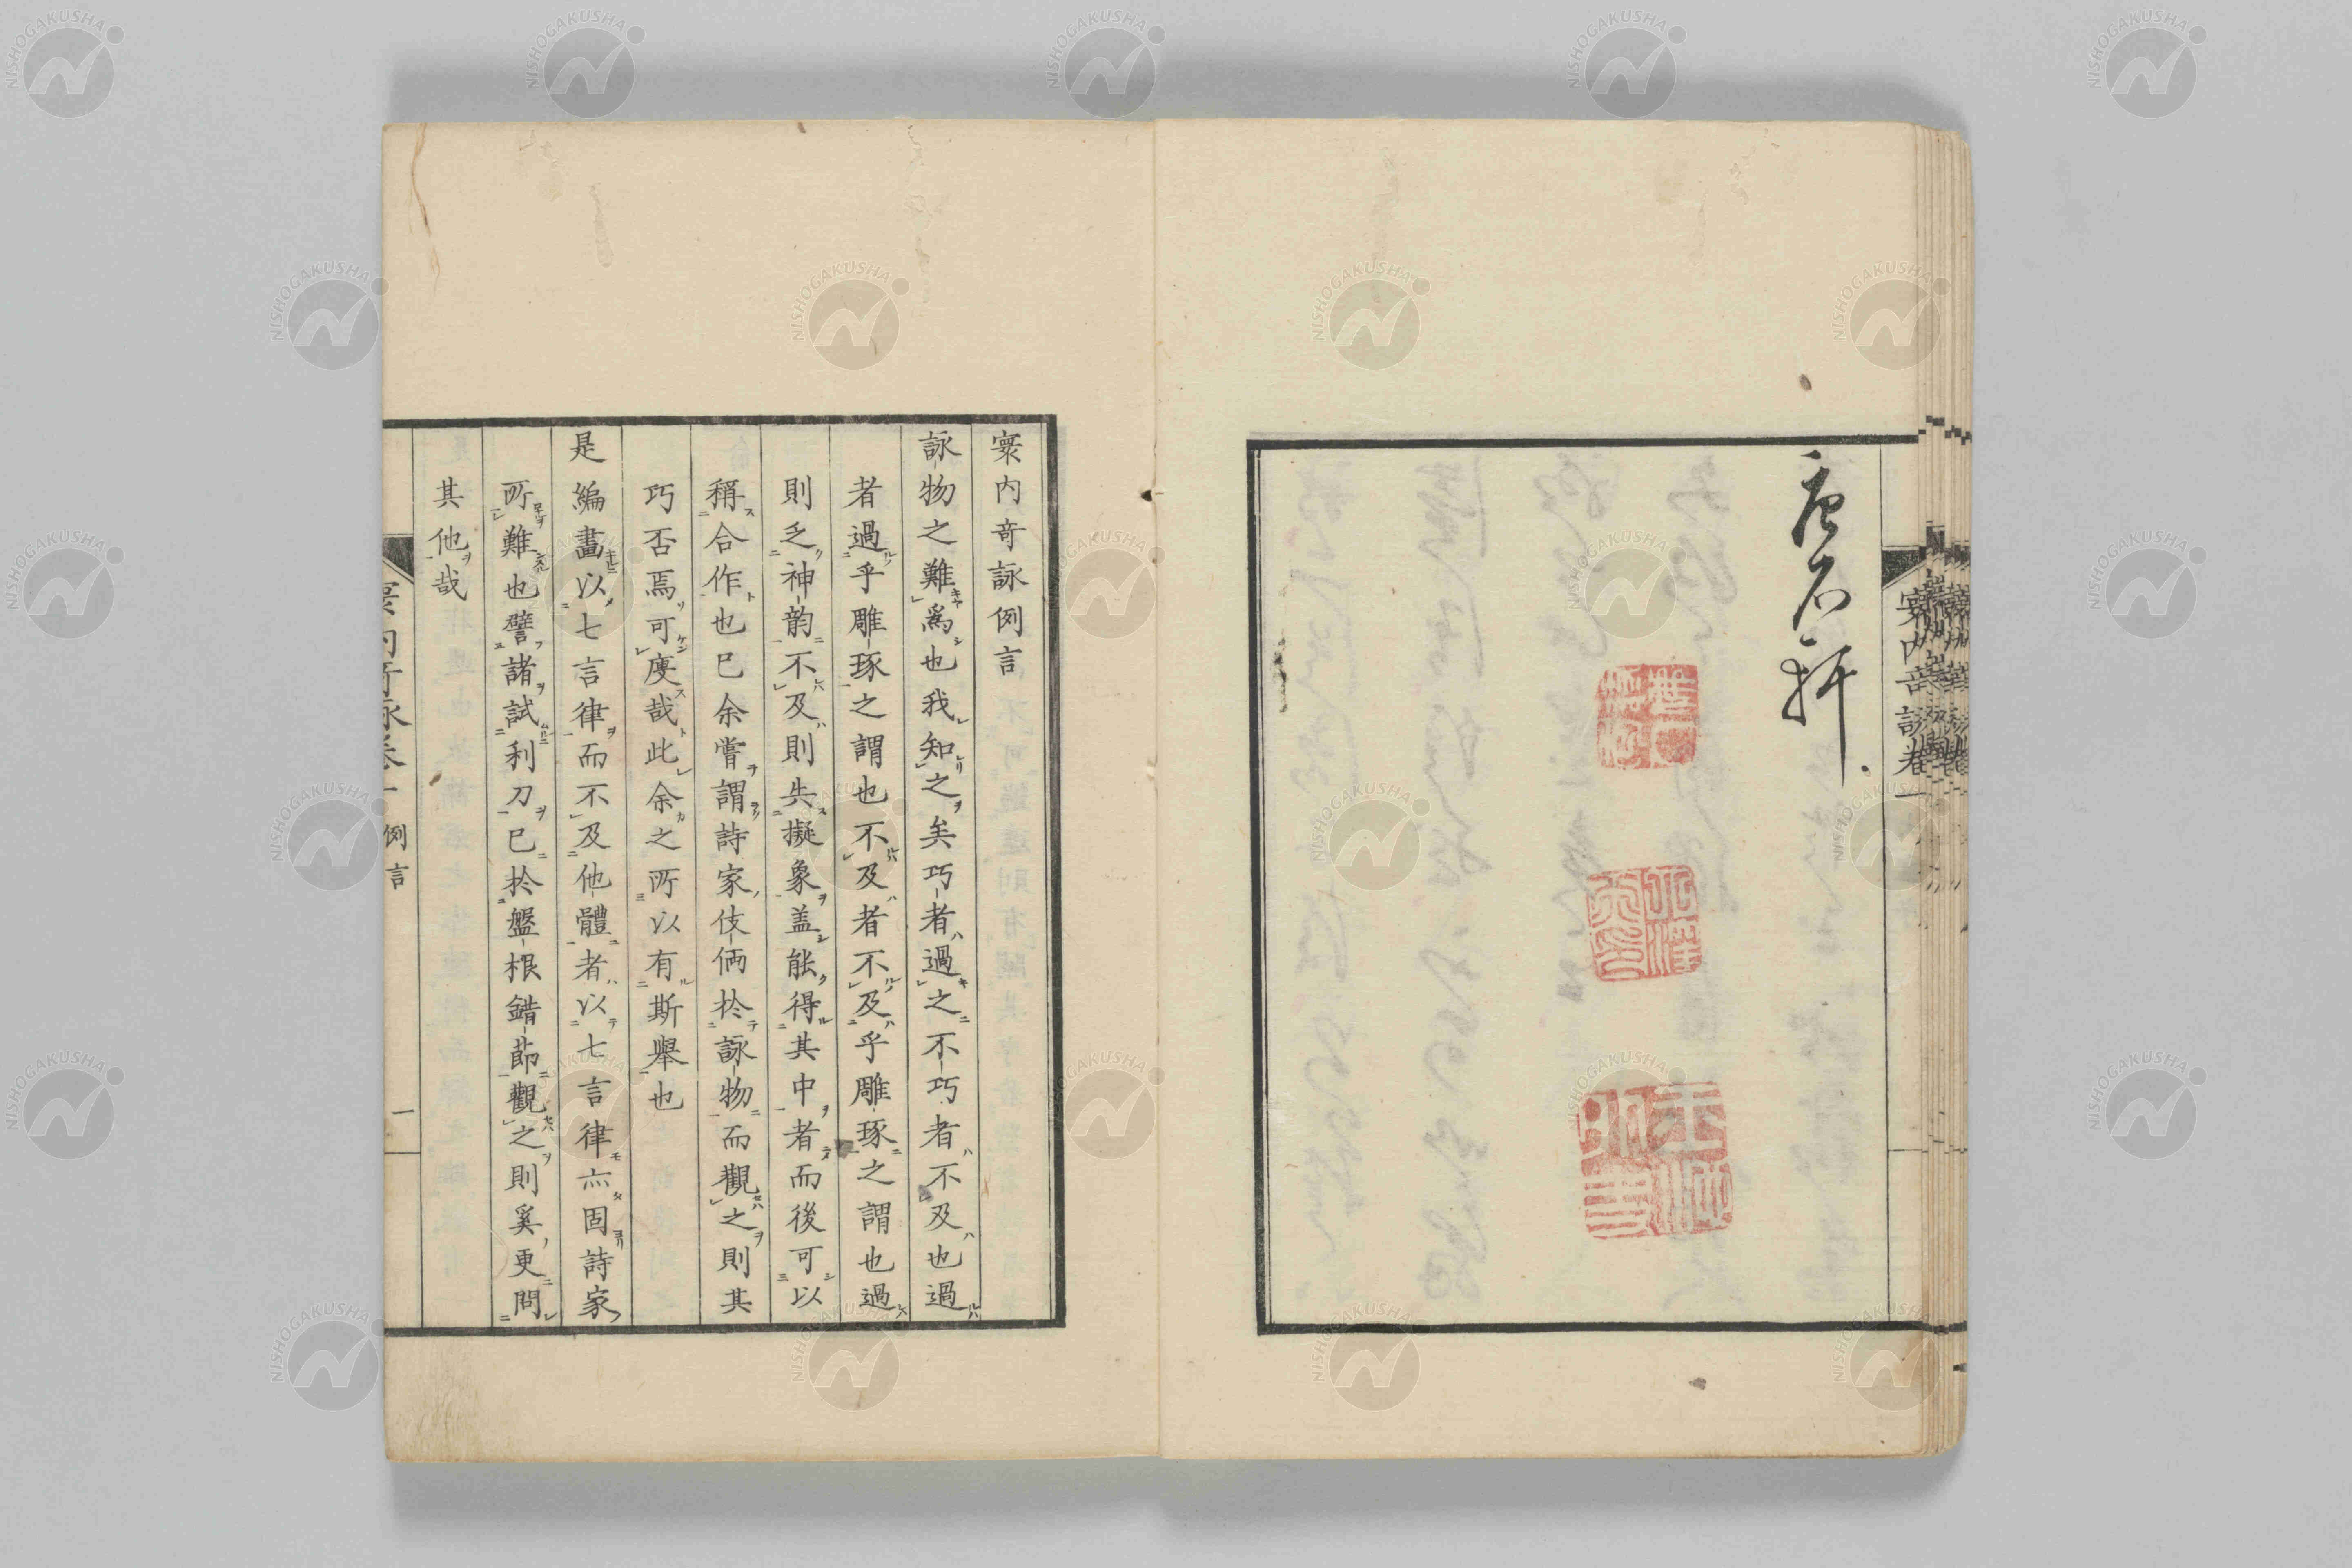 石軒
寰内奇詠巻一
寰内奇詠例言
詠物之難爲也我知之矣巧者過之不巧者不及也過
者過乎雕琢之謂也不及者不及乎雕琢之謂也過
則乏神韵不及則失擬象盖能得其中者而後可以
稱合作也已余嘗謂詩家伎倆於詠物而觀之則其
巧否焉可廋哉此余之所以有斯舉也
是編畫以七言律而不及他體者以七言律亦固詩家
所難也譬諸試利刀已於盤根錯節觀之則奚更問
其他哉
寰内奇詠巻一 例言 一
NISHOGAKUSHA